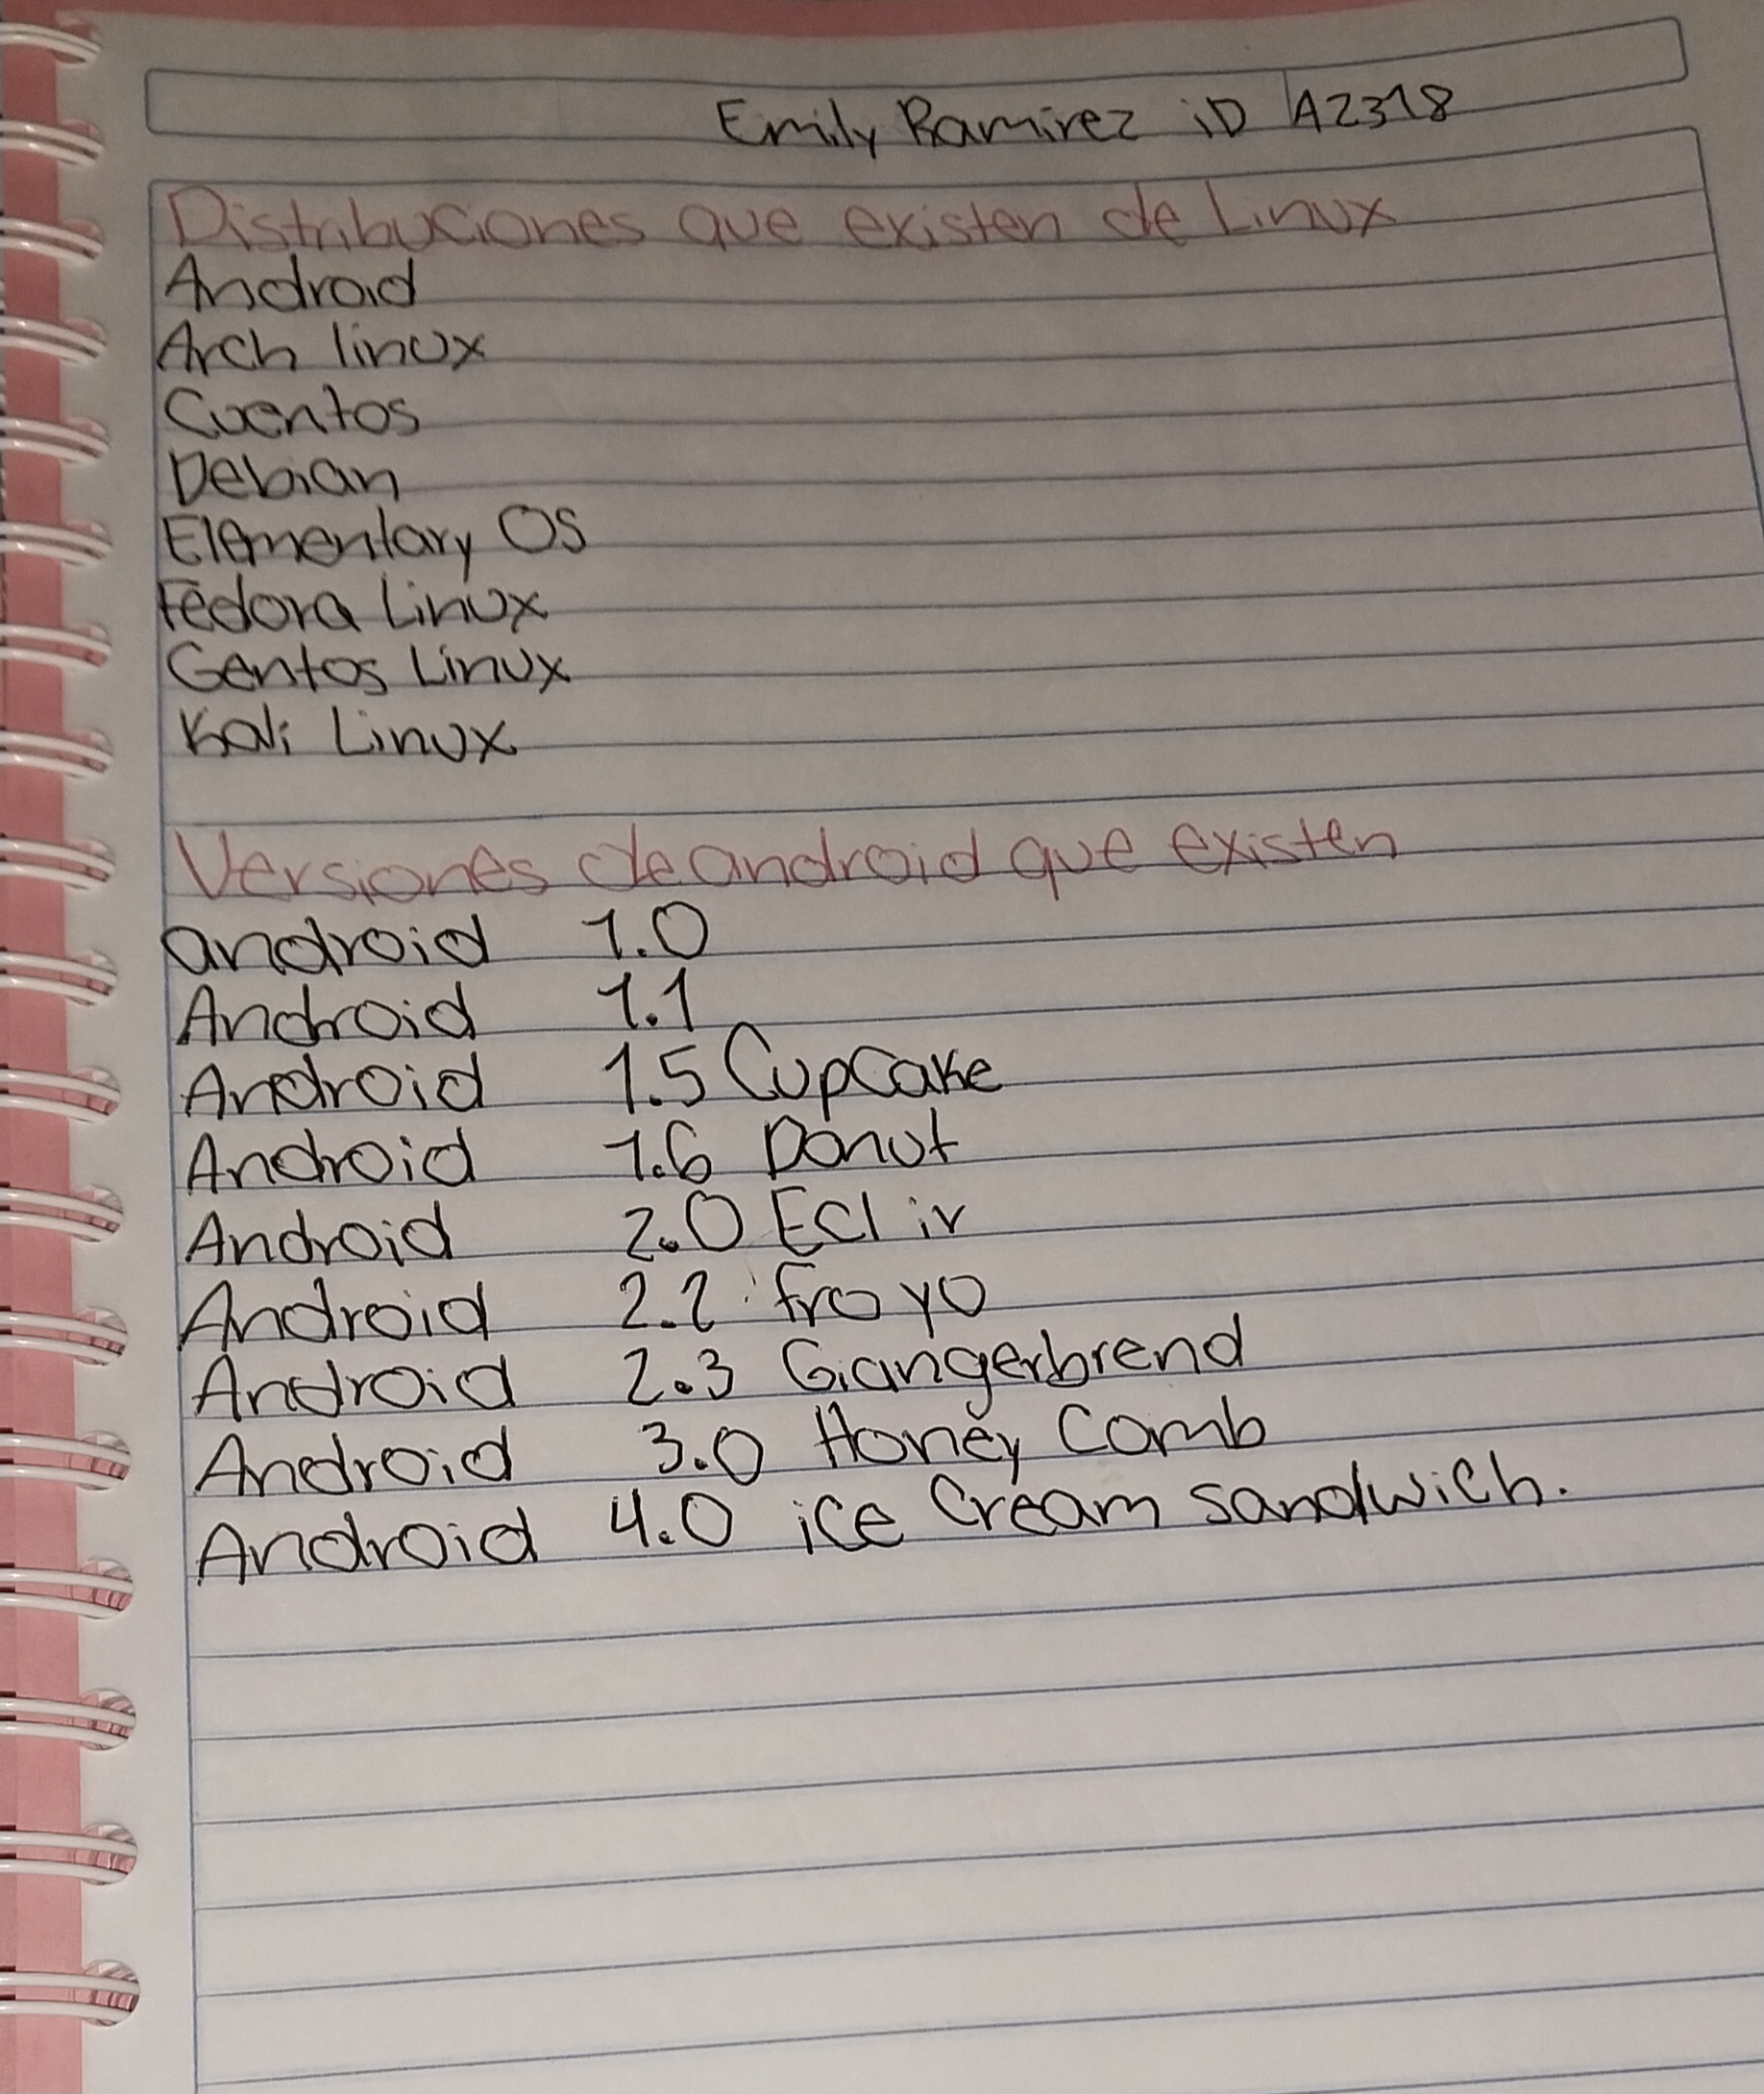 Emily Ramirez iD A2318
Distribuciones que existen de Linux
Android
Arch linux
Cuentos
Debian
Elementary OS
Fedora Linux
Gentos Linux
Kali Linux
Versiones de android que existen
android 1.0
Android 1.1
Android 1.5 CupCake
Android 1.6 Donut
Android 2.0 Ecl ir
Android 2.2 froyo
Android 2.3 Giangerbrend
Android 3.0 Honey Comb
Android 4.0 ice Cream sandwich.